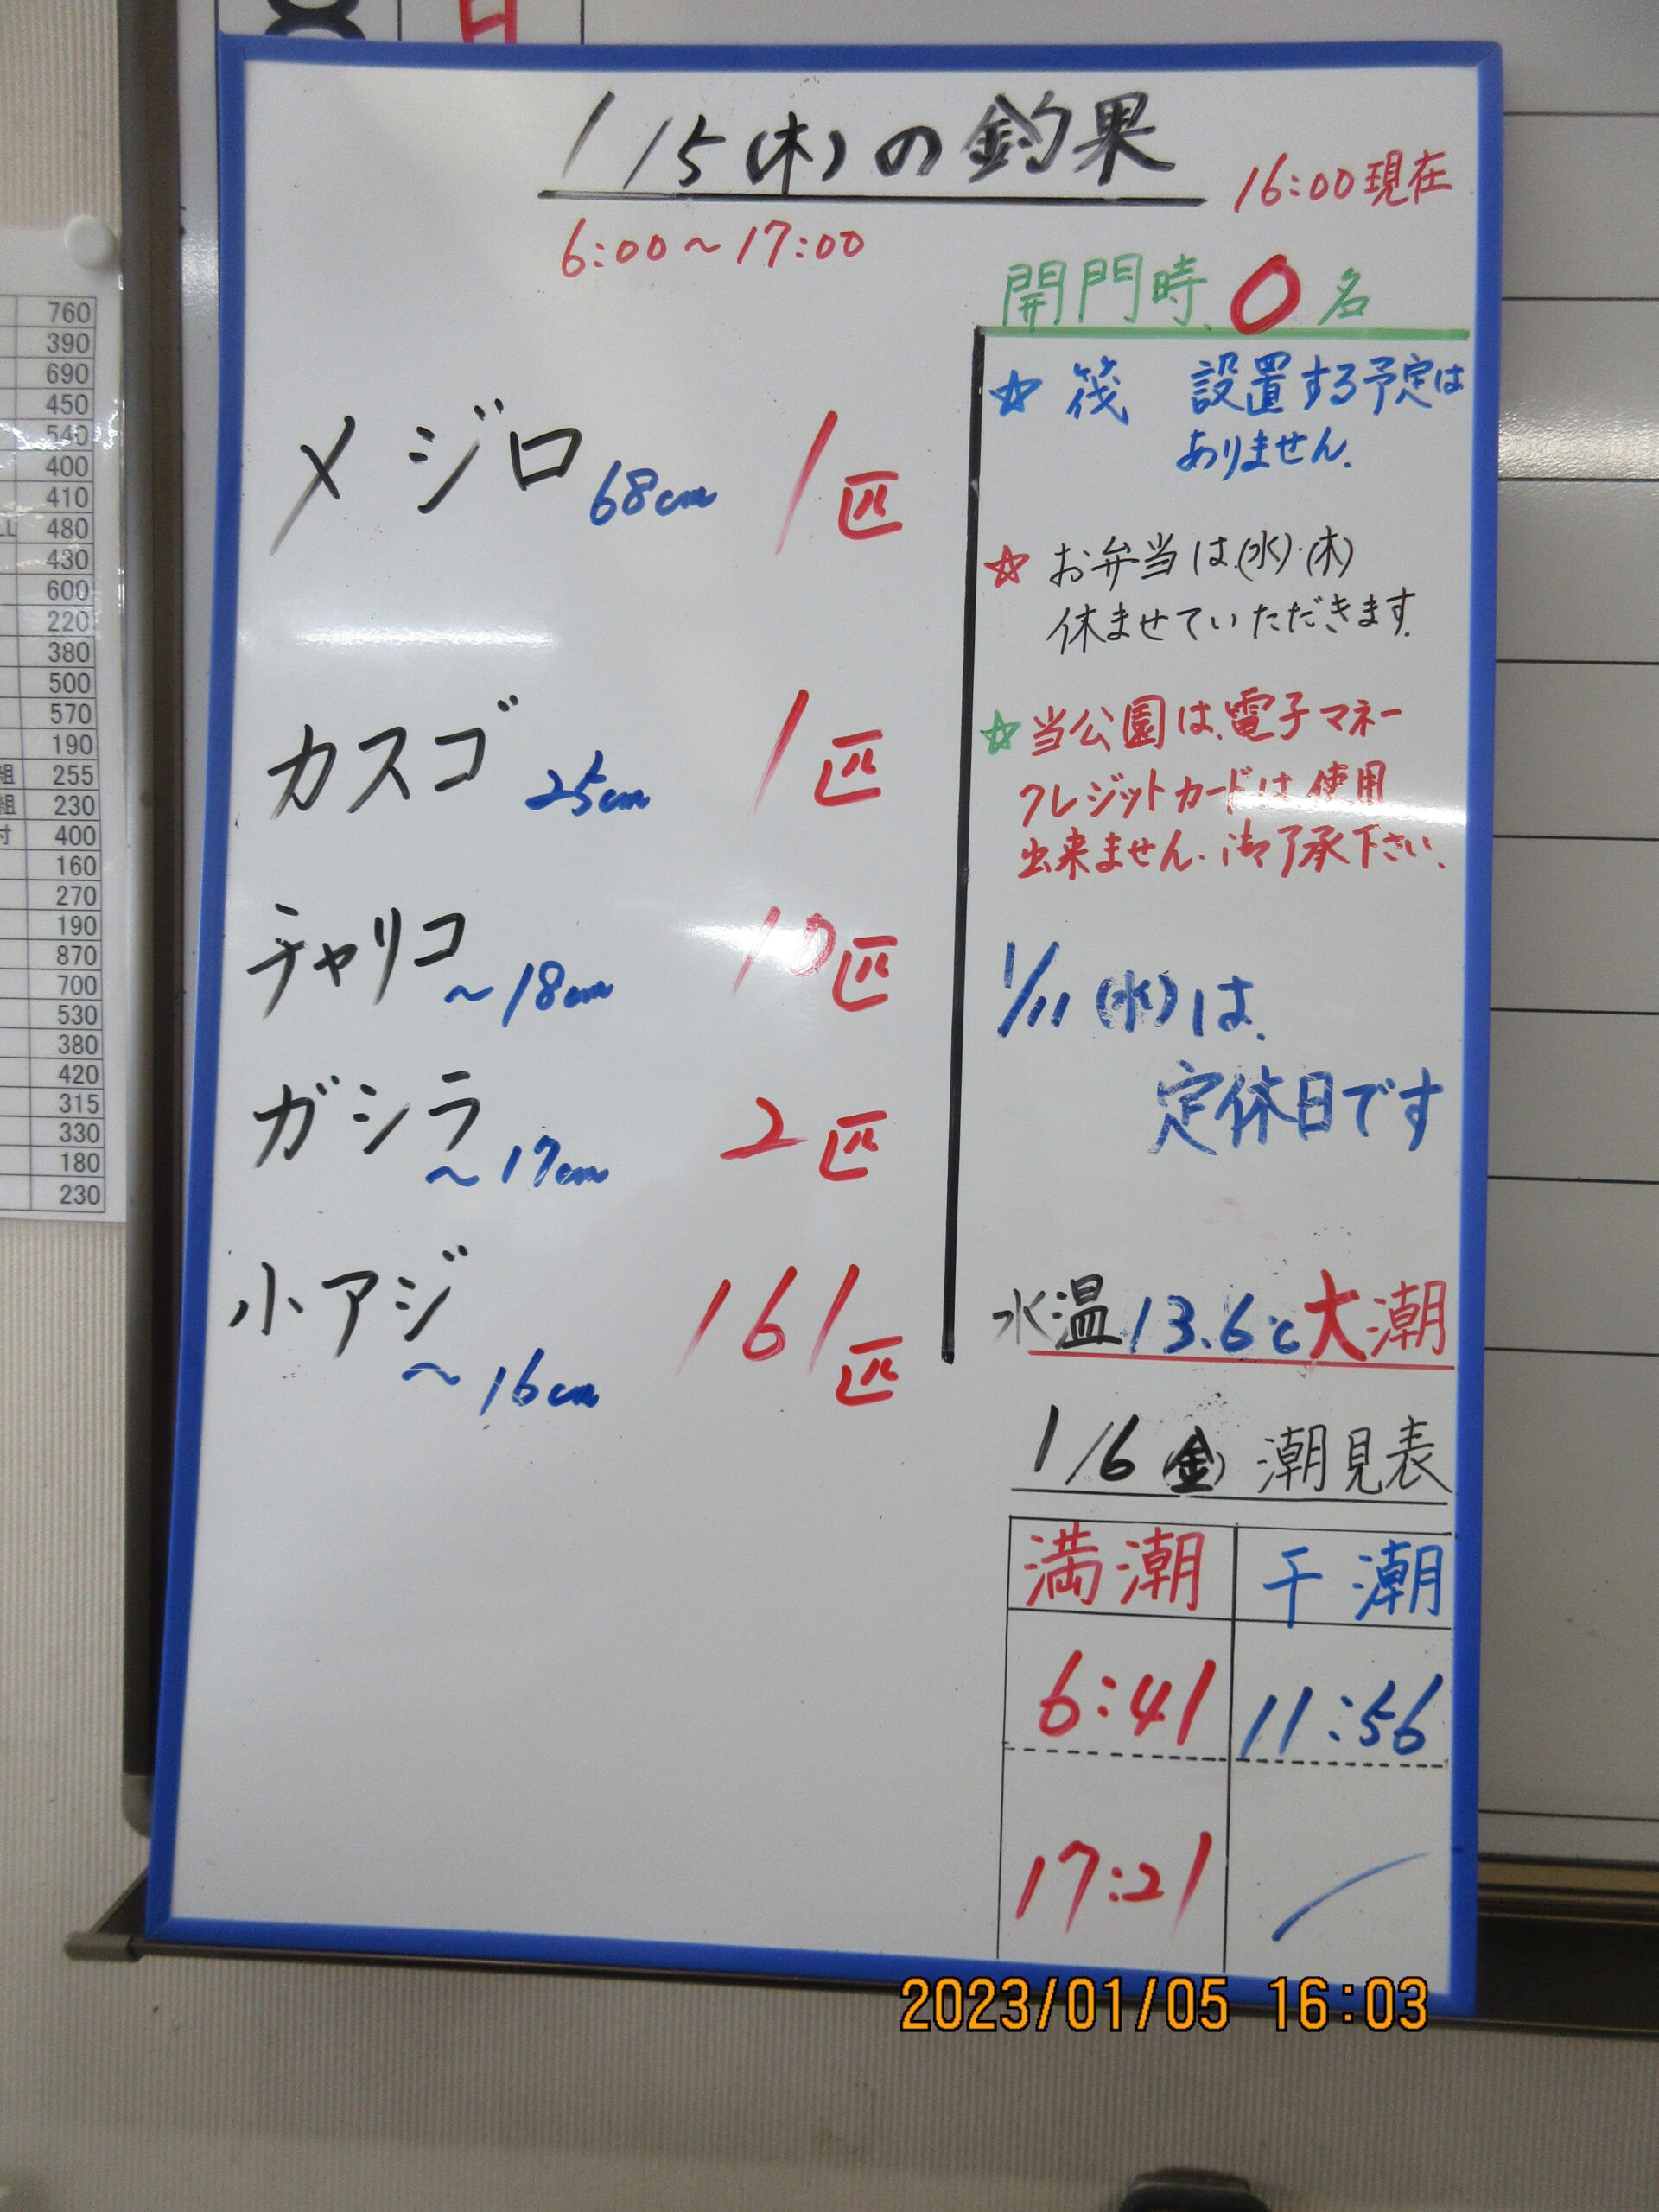 日
1/5(木)の釣果
16:00現在
6:00～17:00
開門時、0名
☆ 筏 設置する予定は
ありません.
☆ お弁当は(水)・(木)
休ませていただきます.
☆当公園は、電子マネー
クレジットカードは使用
出来ません. 御了承下さい.
1/11(水)は、
定休日です
メジロ 68cm 1匹
カスゴ 25cm 1匹
チャリコ ～18cm 10匹
ガシラ ～17cm 2匹
小アジ ～16cm 161匹
水温13.6℃大潮
1/6(金) 潮見表
満潮 干潮
6:41 11:56
17:21 ／
2023/01/05 16:03
760
390
690
450
540
400
410
LL 480
430
600
220
380
500
570
190
組 255
組 230
付 400
160
270
190
870
700
530
380
420
315
330
180
230